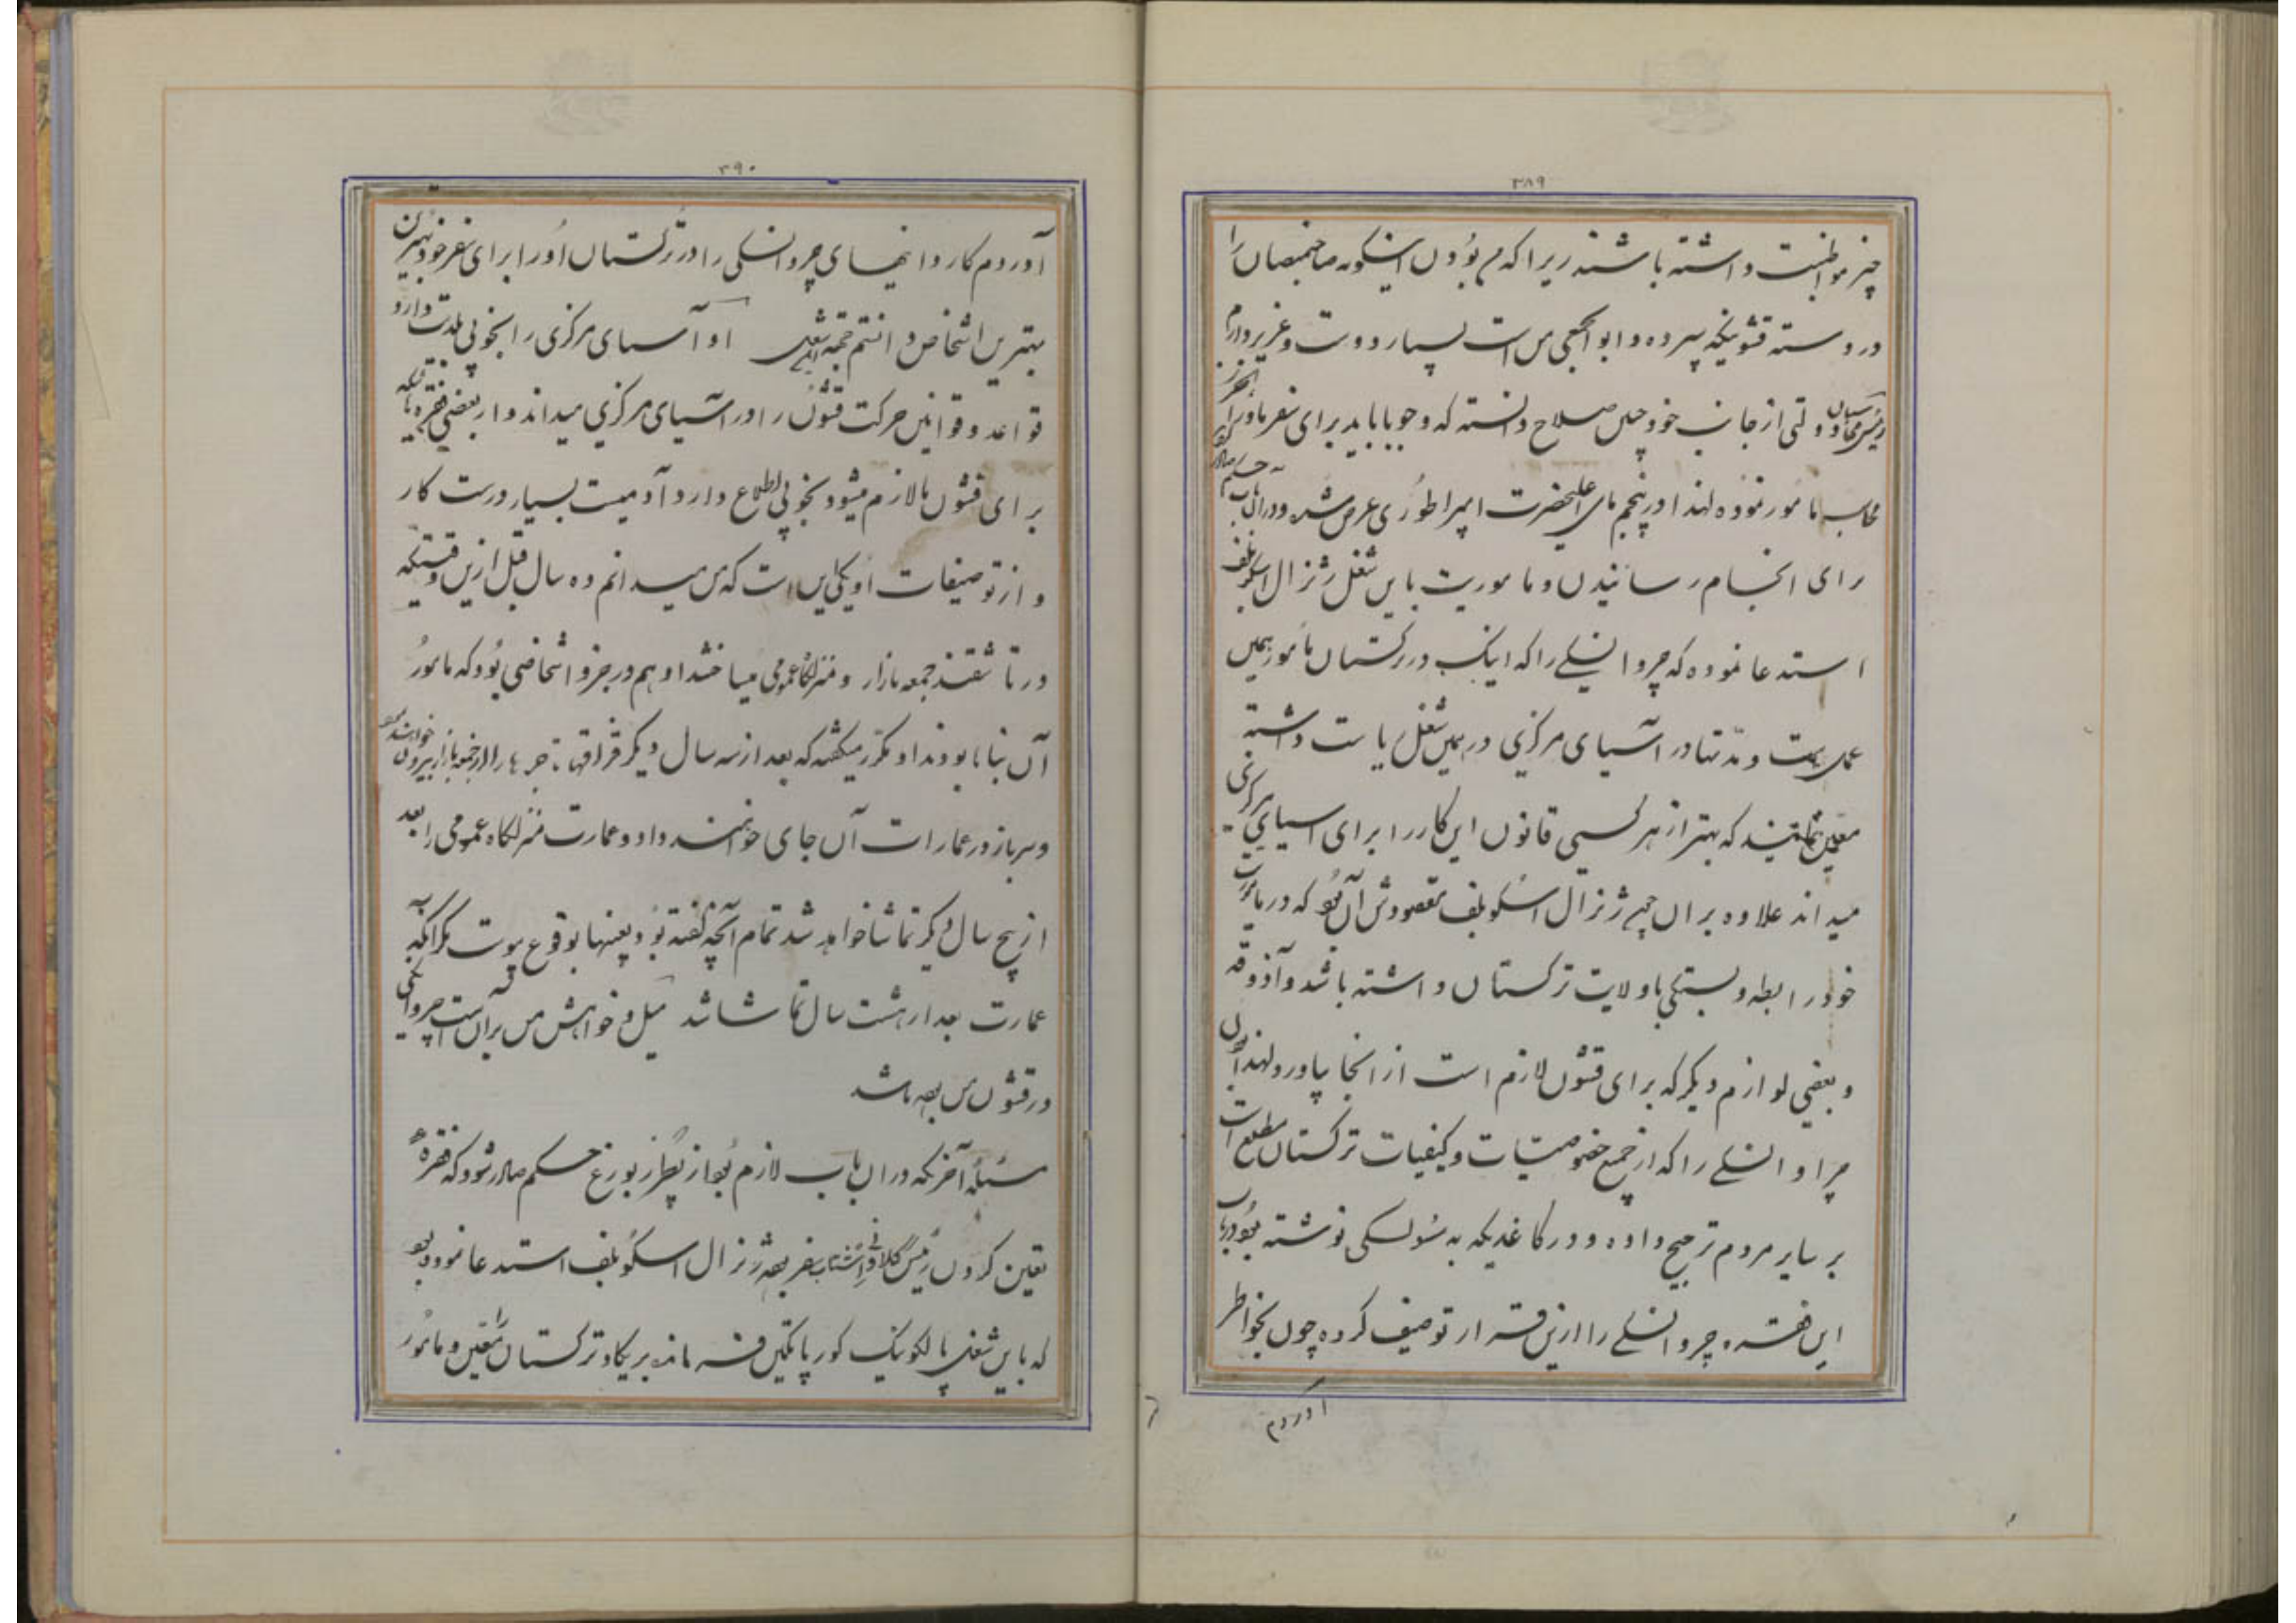 ۳۸۹
چیز مواظبت داشته باشند زیرا که من بودن اینگونه صاحبمنصبان را
در دسته قشونیکه سپرده و ابوابجمعی من است بسیار دوست و عزیز دارم
دولتی از جانب خود چنین صلاح دانسته که وجوبا باید برای سفر ماوراء بحر خزر
محاسب مامور نموده لهذا در پنجم مای اعلیحضرت امپراطوری عرض شده و در این باب حکم صادر
برای انجام رسانیدن و ماموریت باین شغل ژنرال اسکوبلف
استدعا نموده که چروانسکی را که اینک در ترکستان مامور همین
عمل است و مدتها در آسیای مرکزی در همین شغل ریاست داشته
معین نمایند که بهتر از هر کسی قانون این کار را برای اسیای مرکزی
میداند علاوه بر آن چون ژنرال اسکوبلف مقصودش آن بود که در ماموریت
خود رابطه و بستگی با ولایت ترکستان داشته باشد و آذوقه
و بعضی لوازم دیگر که برای قشون لازم است از انجا بیاورد لهذا
چراوانسکی را که از جمیع خصوصیات و کیفیات ترکستان مطلع است
بر سایر مردم ترجیح داده و در کاغذیکه به سولسکی نوشته بود در باب
این فقره چروانسکی را ازین قرار توصیف کرده چون بخواطر
آوردم
۳۹۰
آوردم کاردانیهای چروانسکی را در ترکستان اورا برای سفر خود بهترین
بهترین اشخاص دانستم او آسیای مرکزی را بخوبی بلدیت دارد
قواعد و قوانین حرکت قشون را در آسیای مرکزی میداند و از بعضی فقره
برای قشون ما لازم میشود بخوبی اطلاع دارد آدمیست بسیار درست کار
و از توصیفات او یکی این است که من میدانم ده سال قبل ازین وقتیکه
در تاشقند جمعه بازار و منزلگاه عمومی میساختند او هم در جزو اشخاصی بود که مامور
آن بنا بودند او مکرر میگفت که بعد از سه سال دیگر قزاقها تاجرها را از جمعه بازار بیرون خواهند
و سرباز در عمارات آن جای خواهند داد و عمارت منزلگاه عمومی را بعد
از پنج سال دیگر تماشاخانه خواهد شد تمام آنچه گفته بود بعینها بوقوع پیوست مگر آنکه
عمارت بعد از هشت سال تماشا شد میل و خواهش من بر آن است که چروانسکی
در قشون من بوده باشد
مسئله آخر که در آن باب لازم بود از پطرزبورغ حکم صادر شود که فقره
تعین کردن رئیس بود ژنرال اسکوبلف استدعا نموده بود
که باین شغل پالکونیک کورپاتکین فرمانده بریکاد ترکستان را معین و مامور